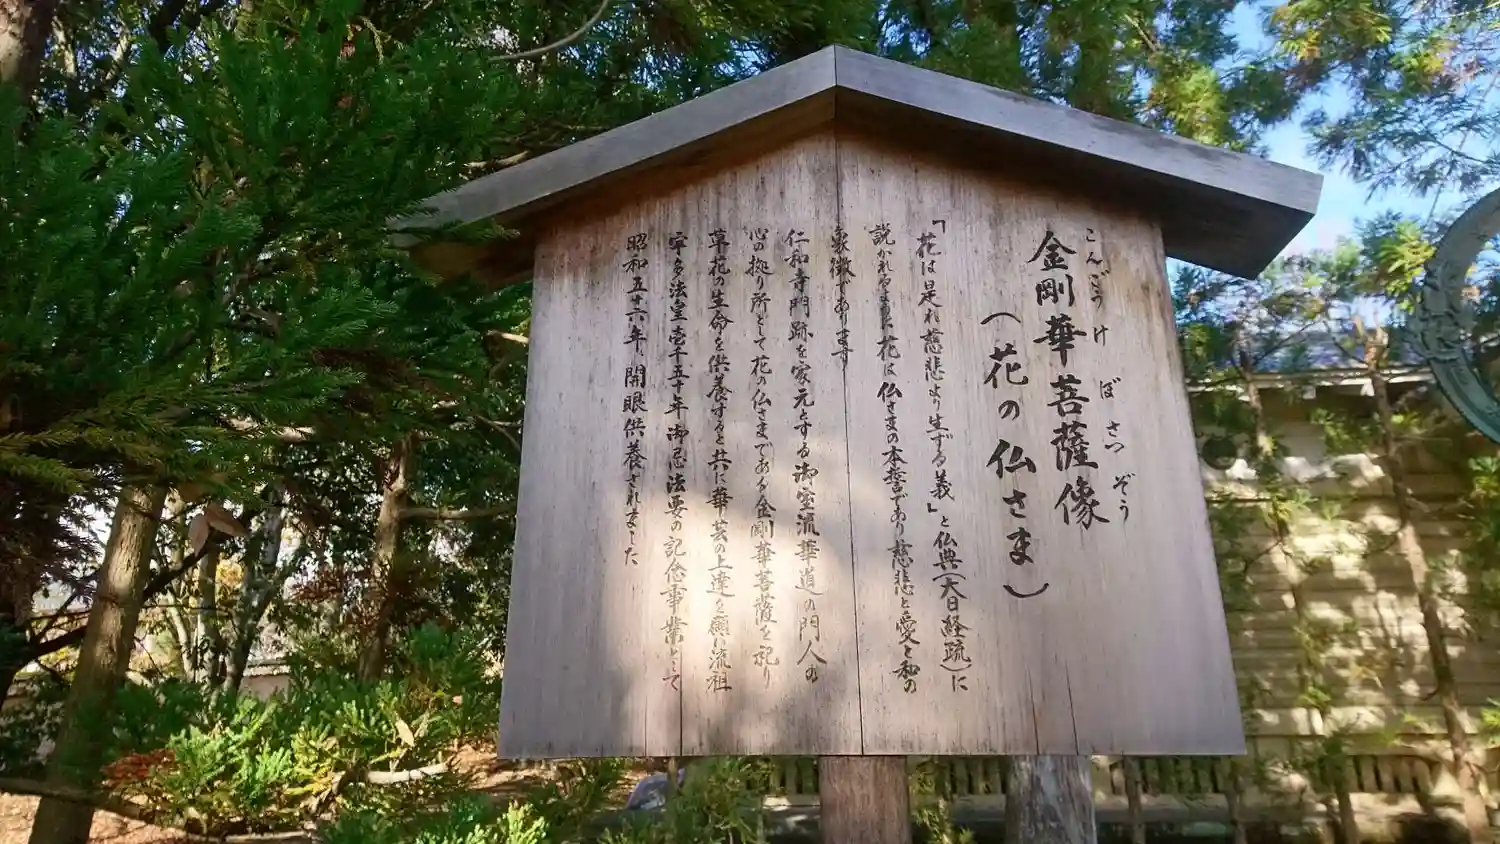 こんごうけ ぼさつ ぞう
金剛華菩薩像
（花の仏さま）
「花は是れ慈悲より生ずる義」と仏典（大日経疏）に
説かれるように花は仏さまの本誓であり慈悲と愛と和の
象徴であります
仁和寺門跡を家元とする御室流華道の門人の
心の拠り所として花の仏さまである金剛華菩薩を祀り
草花の生命を供養すると共に華芸の上達を願い流祖
宇多法皇壱千五十年御忌法要の記念事業として
昭和五十六年、開眼供養されました